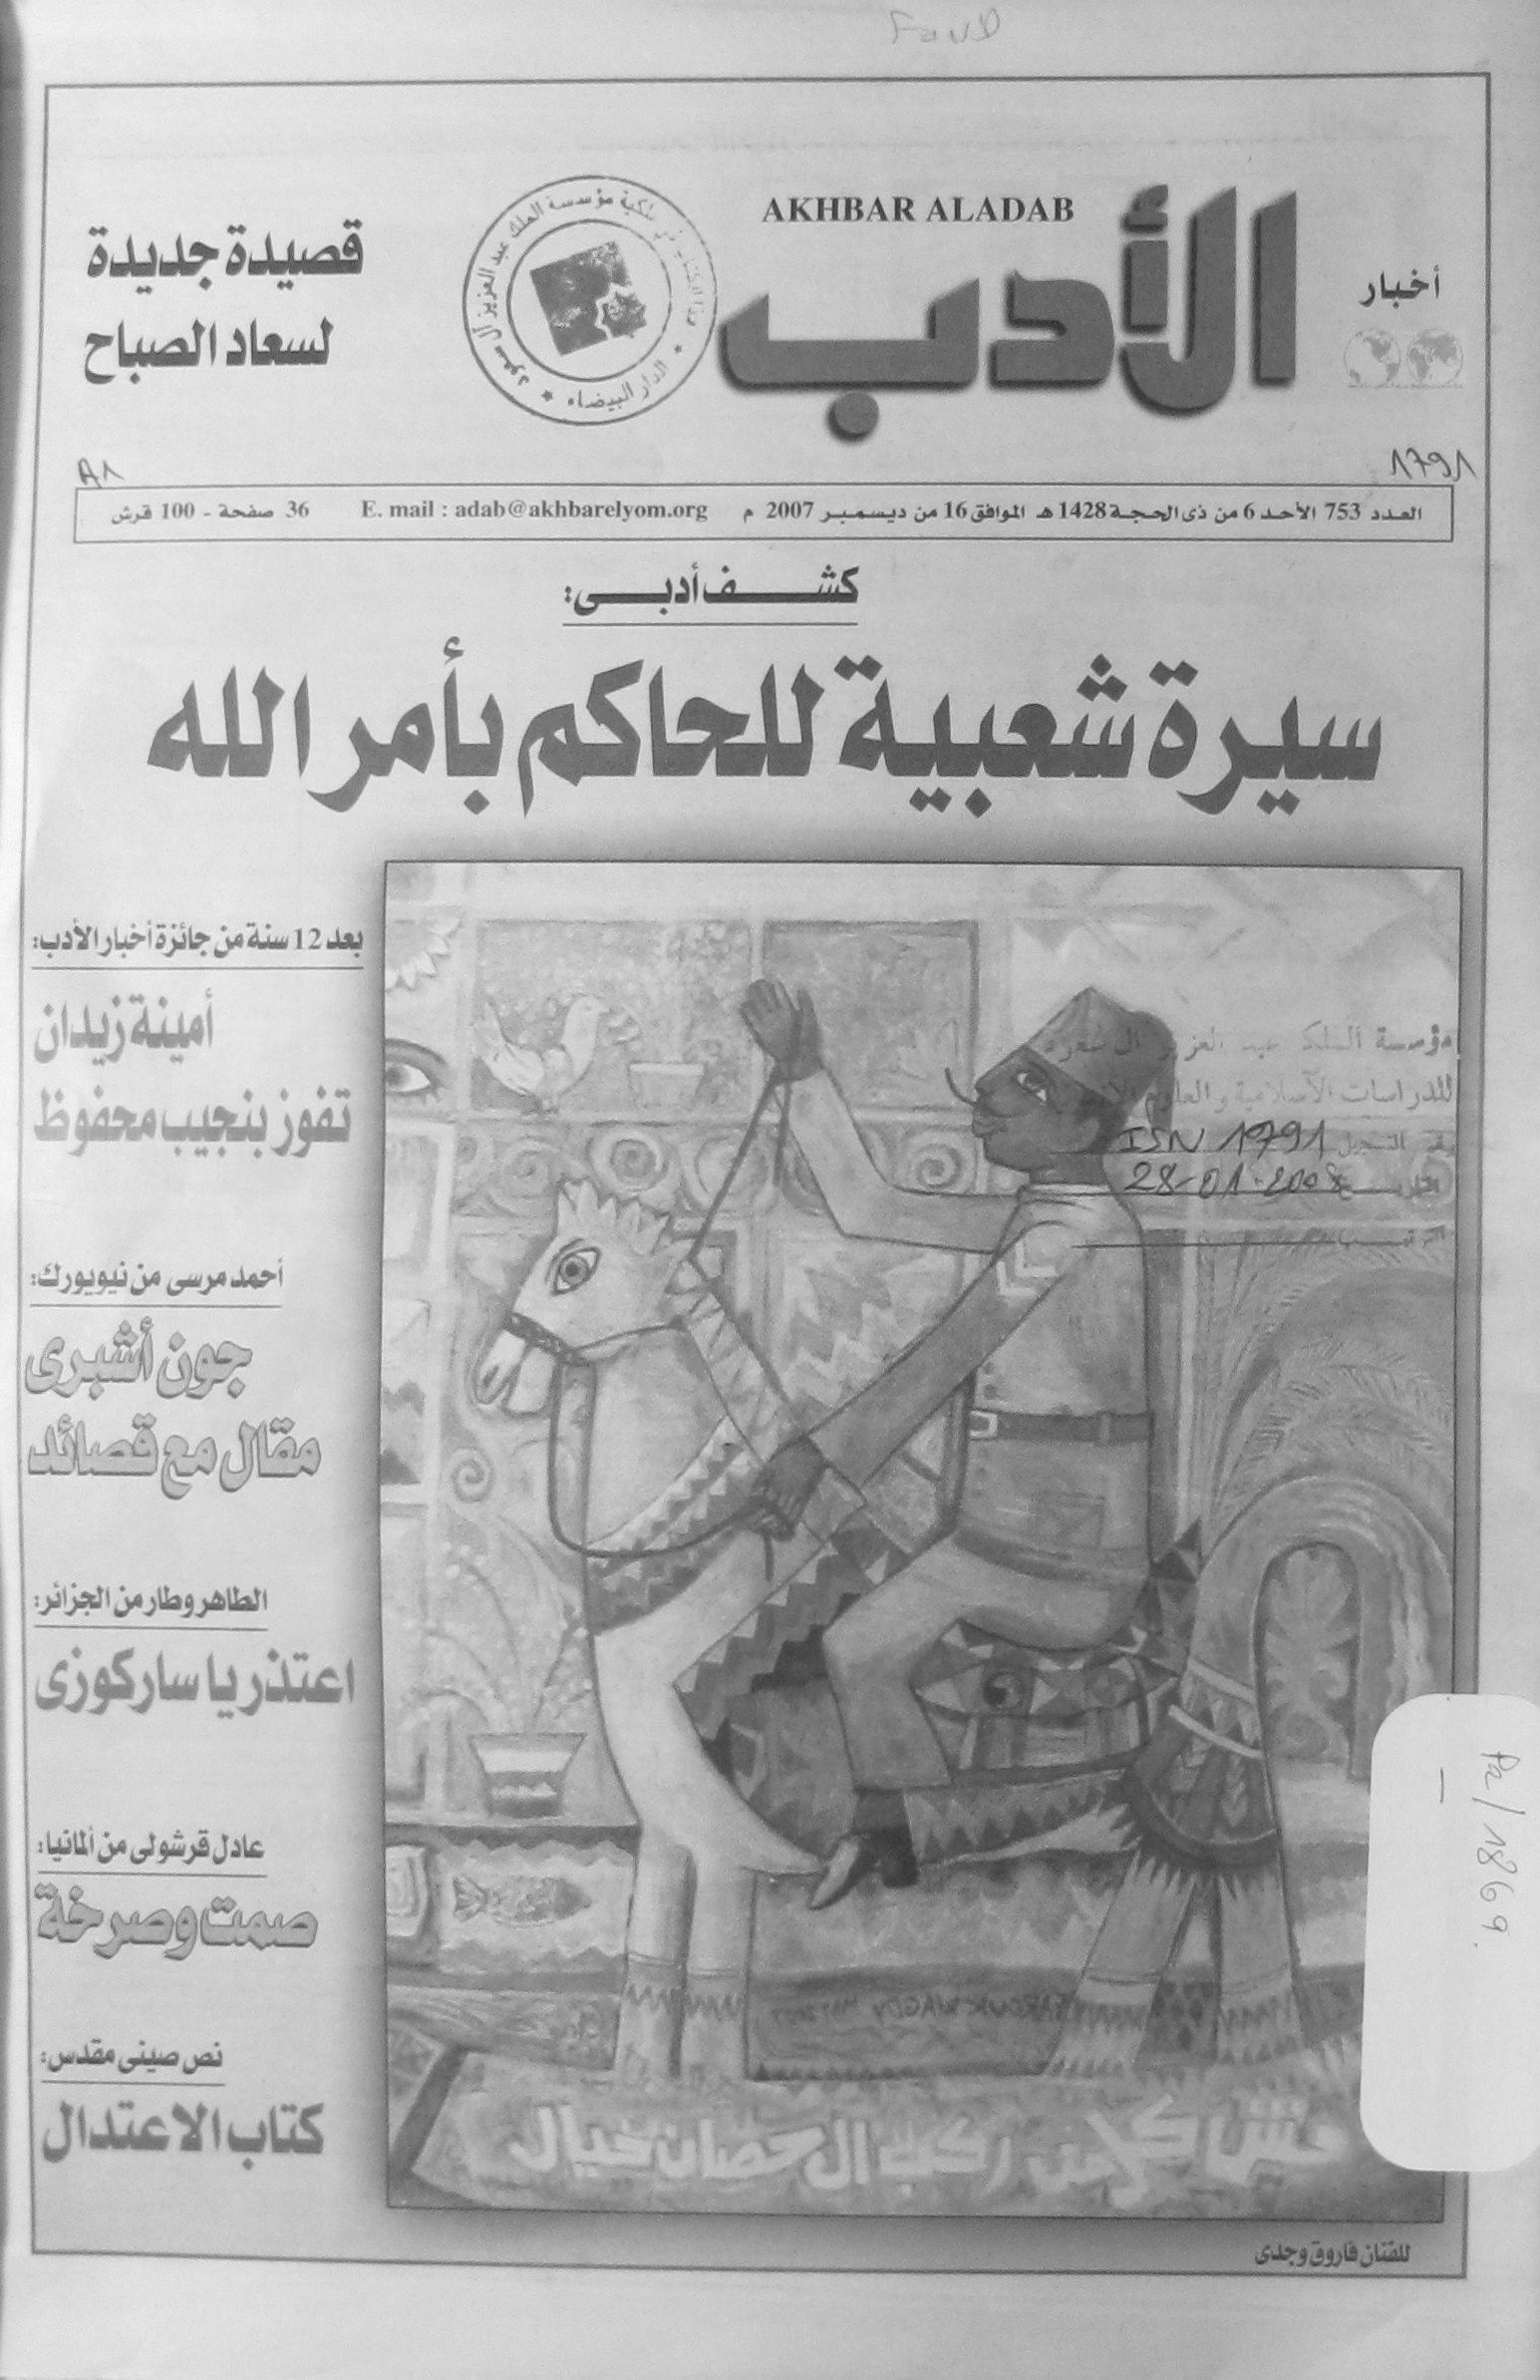 أخبار
الأدب
AKHBAR ALADAB
قصيدة جديدة
لسعاد الصباح
ملكية مؤسسة الملك عبد العزيز آل سعود
الدار البيضاء
A1
1791
العدد 753 الأحد 6 من ذى الحجة 1428 هـ الموافق 16 من ديسمبر 2007 م E. mail : adab@akhbarelyom.org 36 صفحة - 100 قرش
كشف أدبى:
سيرة شعبية للحاكم بأمر الله
بعد 12 سنة من جائزة أخبار الأدب:
أمينة زيدان
تفوز بنجيب محفوظ
أحمد مرسى من نيويورك:
جون أشبرى
مقال مع قصائد
الطاهر وطار من الجزائر:
اعتذر يا ساركوزى
عادل قرشولى من ألمانيا:
صمت وصرخة
نص صينى مقدس:
كتاب الاعتدال
مؤسسة الملك عبد العزيز آل سعود
للدراسات الاسلامية والعلوم
رقم التسجيل ISN 1791
28-01-2008
مش كل من ركب ال حصان خيال
للفنان فاروق وجدى
Pa/1869.